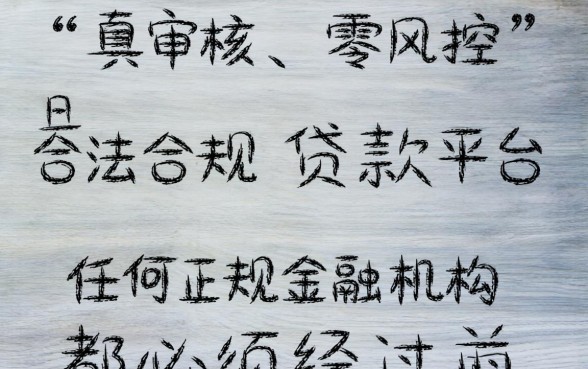 “真审核、零风控”
合法合规 贷款平台
任何正规金融机构
都必须经过前